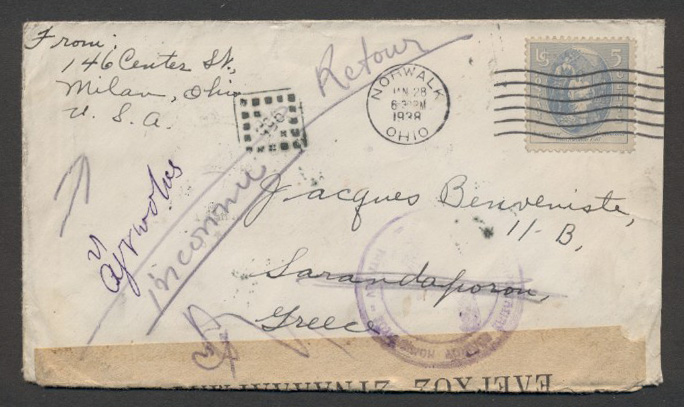 From:
146 Center St,
Milan, Ohio
U. S. A.
Retour
NORWALK
JAN 28
6 30 PM
1938
OHIO
5
inconnu
Jacques Benveniste,
11-B,
Sarandaporou,
Greece
ΕΛΕΓΧΟΣ ΣΥΝΑΛΛΑΓΜΑ